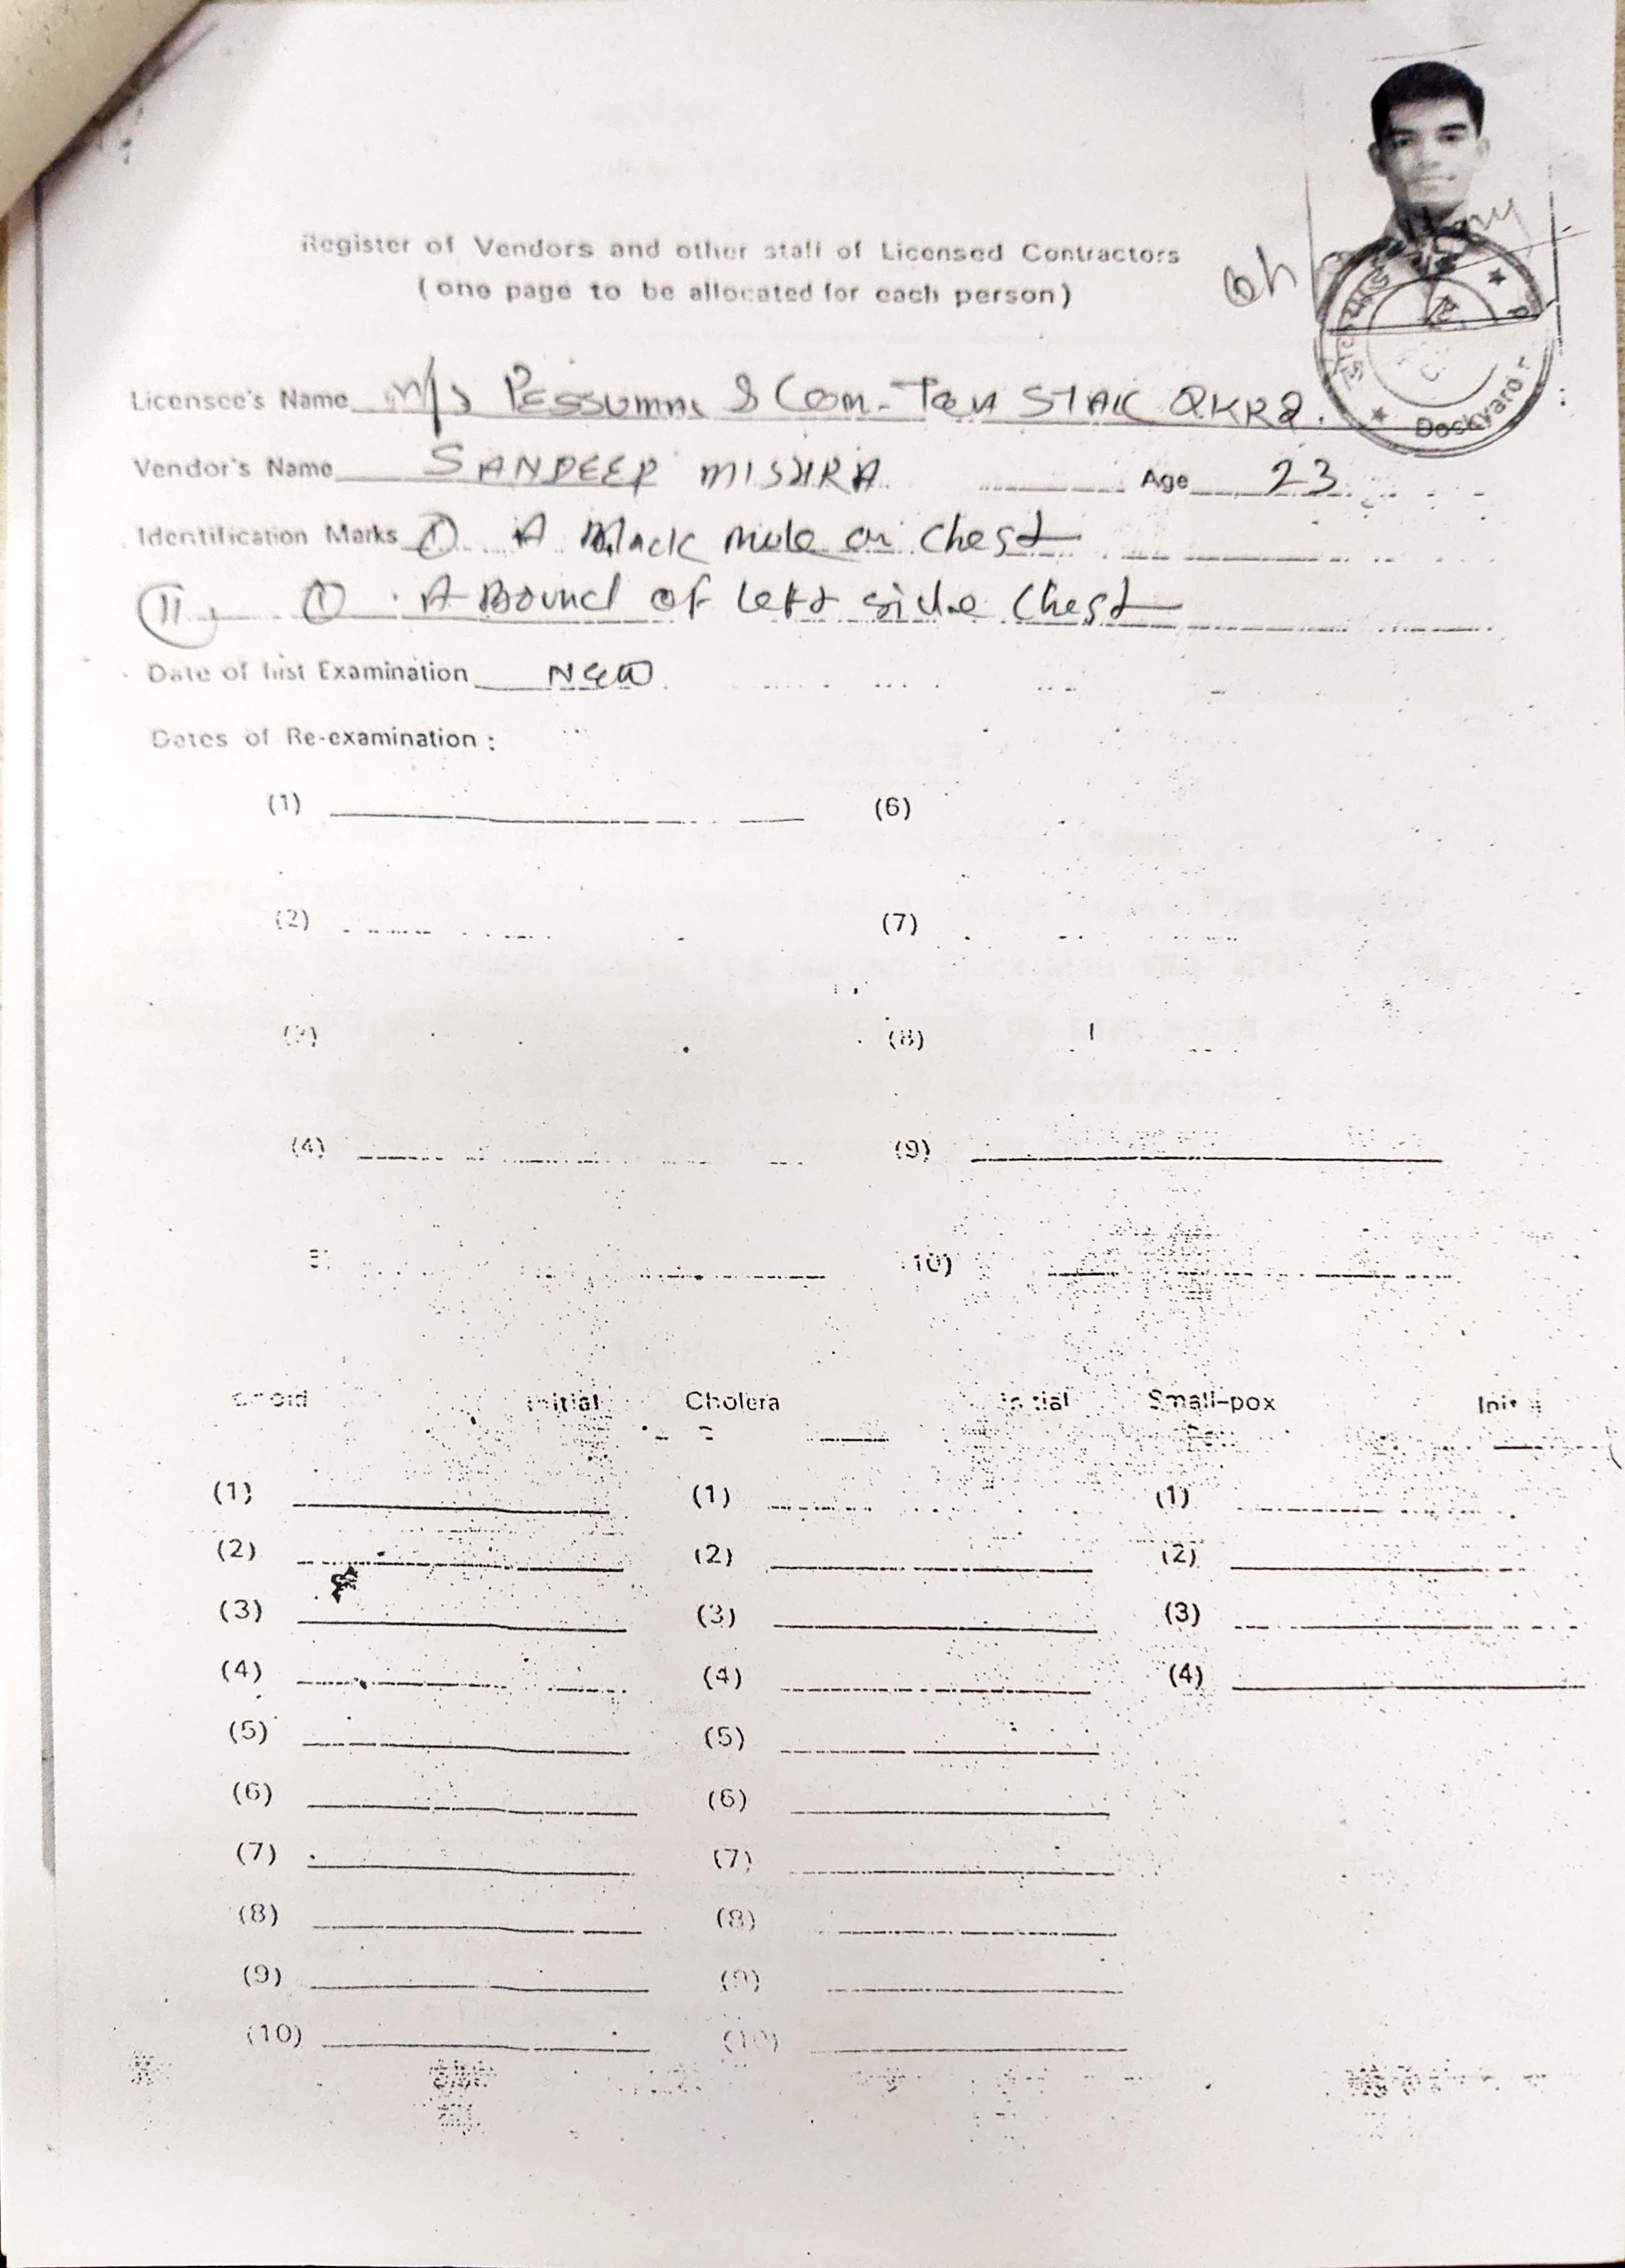 Register of Vendors and other staff of Licensed Contractors
(one page to be allocated for each person)
Dockyard
Licensee's Name M/s Pessumal & Com-
Vendor's Name SANDEEP MISHRA Age 23
Identification Marks (1) A Black mole on chest
(II) A of left side chest
Date of first Examination New
Dates of Re-examination :
(1) (6)
(2) (7)
(3) (8)
(4) (9)
(5) (10)
Initial Cholera Initial Small-pox Initial
(1) (1) (1)
(2) (2) (2)
(3) (3) (3)
(4) (4) (4)
(5) (5)
(6) (6)
(7) (7)
(8) (8)
(9) (9)
(10) (10)